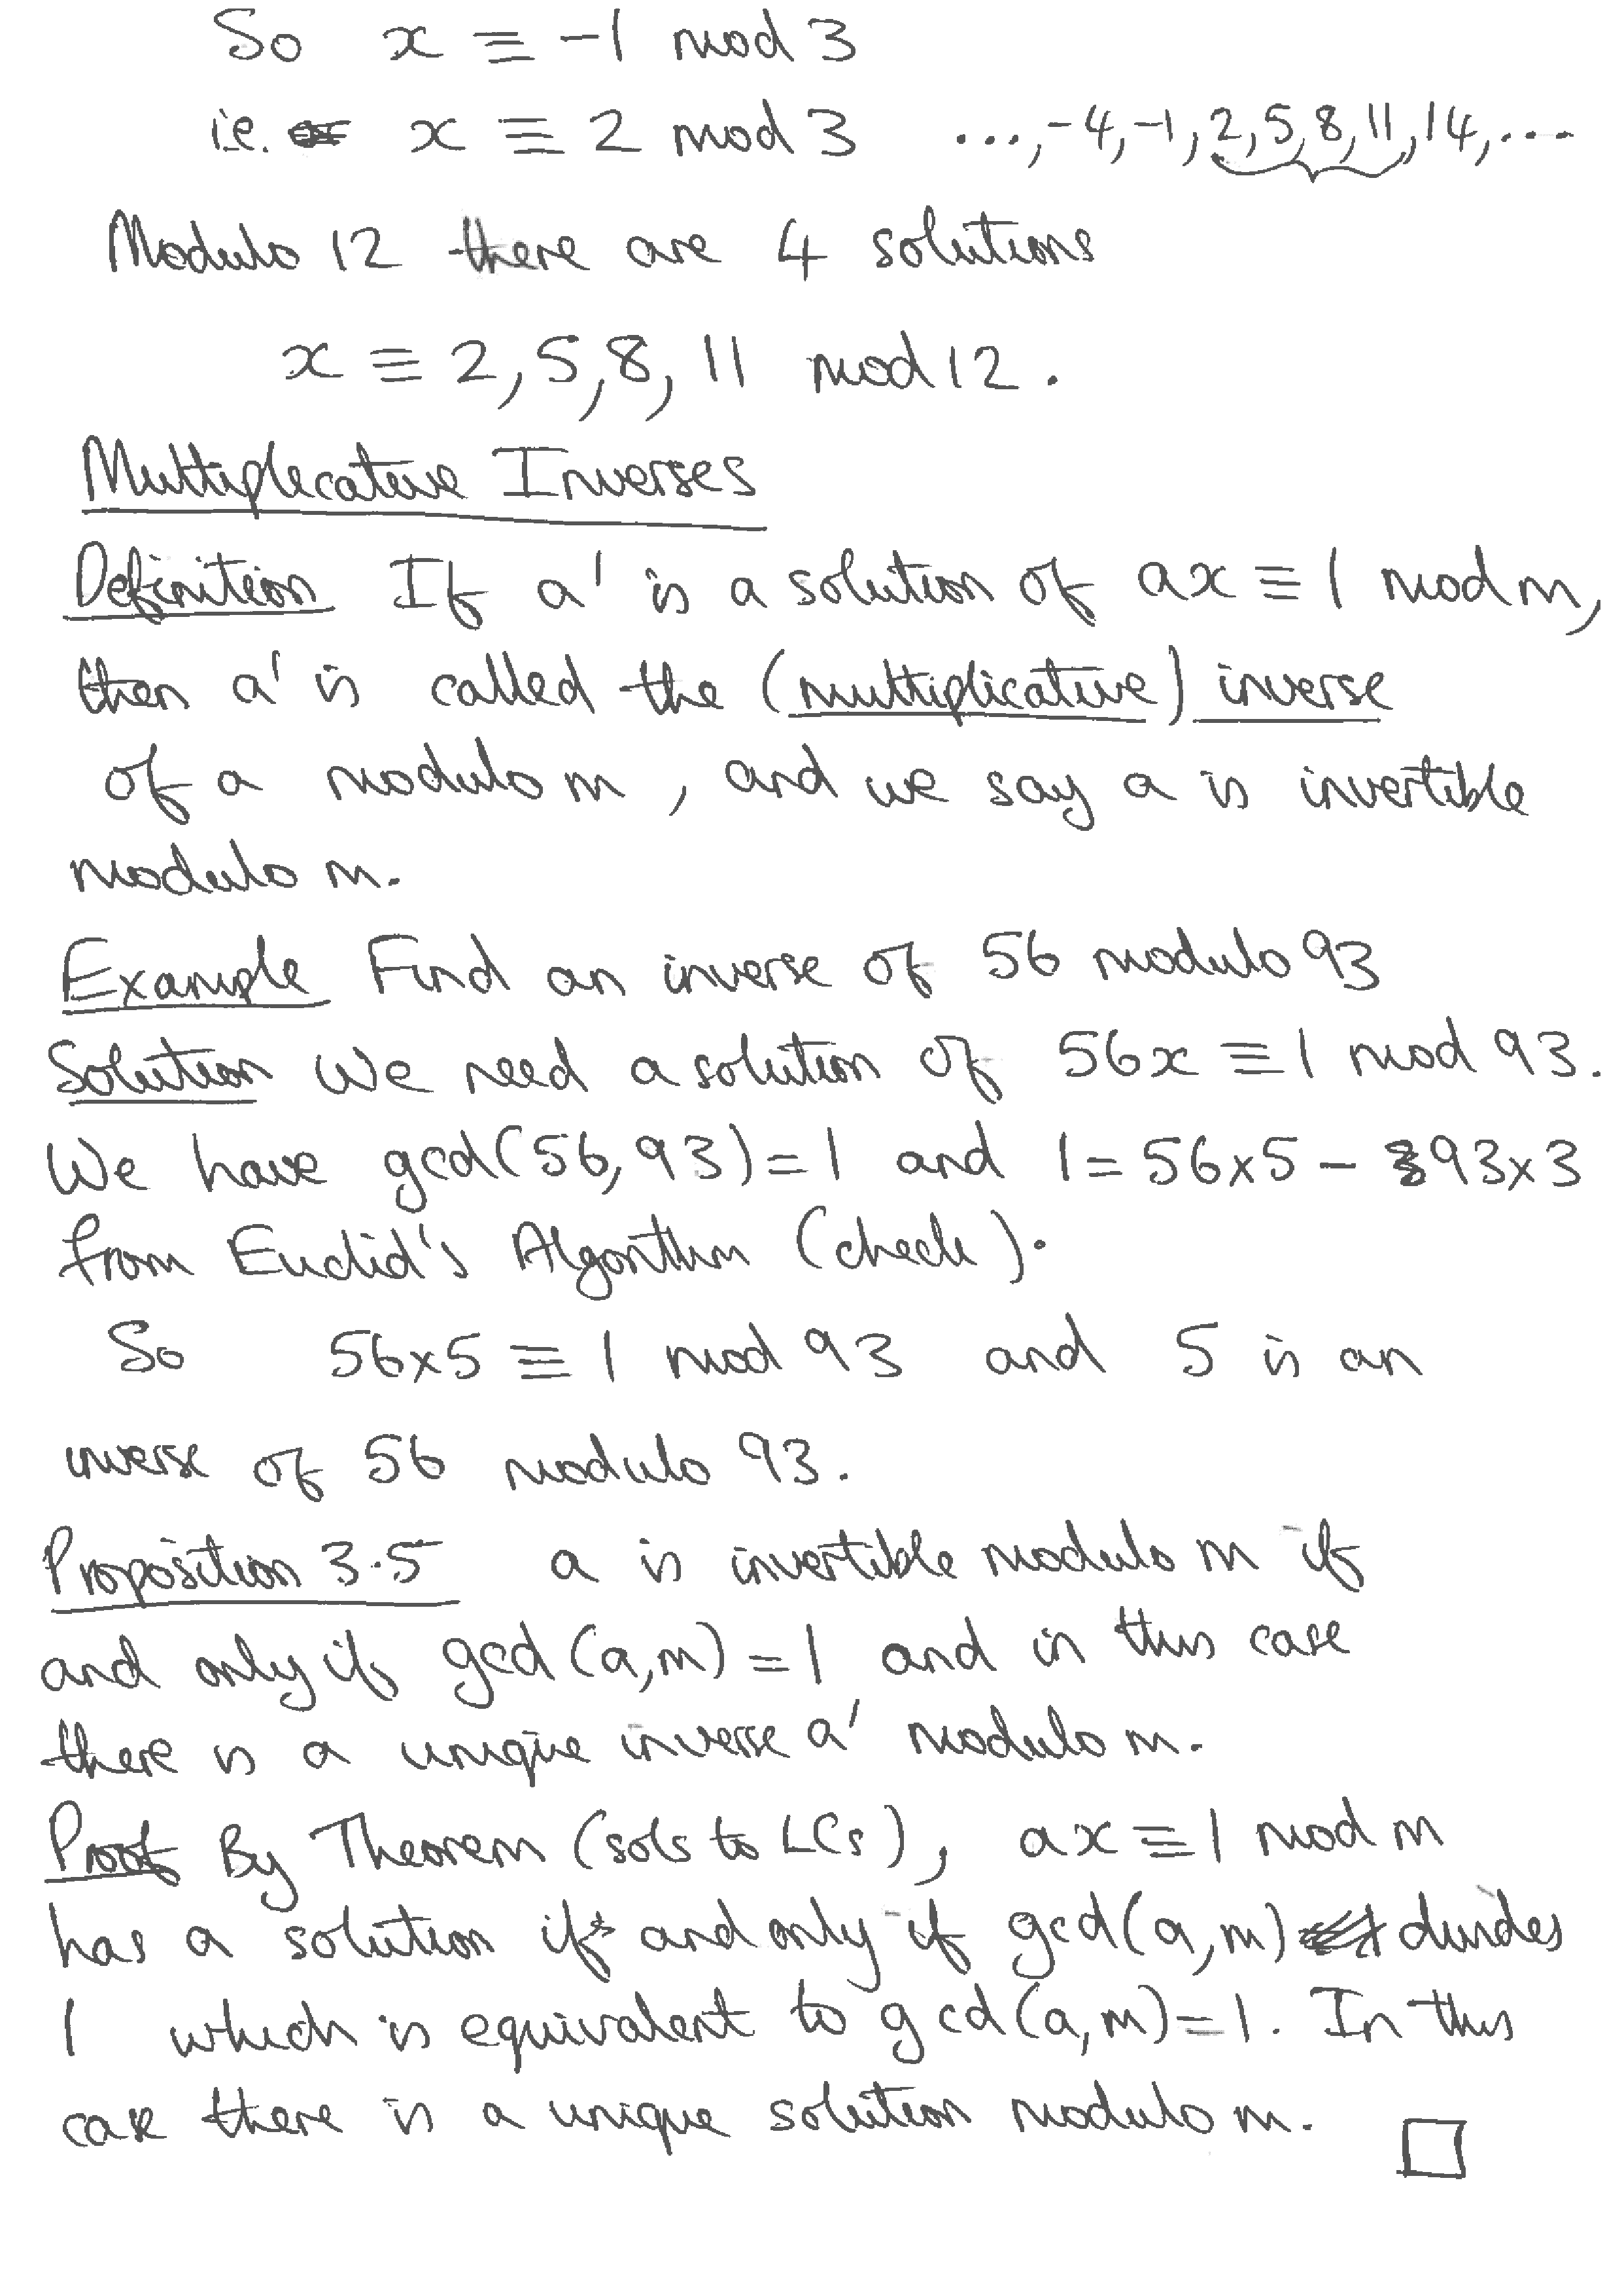 So x ≡ -1 mod 3
i.e. x ≡ 2 mod 3 ..., -4, -1, 2, 5, 8, 11, 14, ...
Modulo 12 there are 4 solutions
x ≡ 2, 5, 8, 11 mod 12.
Multiplicative Inverses
Definition If a' is a solution of ax ≡ 1 mod m,
then a' is called the (multiplicative) inverse
of a modulo m, and we say a is invertible
modulo m.
Example Find an inverse of 56 modulo 93
Solution We need a solution of 56x ≡ 1 mod 93.
We have gcd(56, 93) = 1 and 1 = 56×5 - 93×3
from Euclid's Algorithm (check).
So 56×5 ≡ 1 mod 93 and 5 is an
inverse of 56 modulo 93.
Proposition 3.5 a is invertible modulo m if
and only if gcd(a, m) = 1 and in this case
there is a unique inverse a' modulo m.
Proof By Theorem (sols to LCs), ax ≡ 1 mod m
has a solution if and only if gcd(a, m) divides
1 which is equivalent to gcd(a, m) = 1. In this
case there is a unique solution modulo m. □